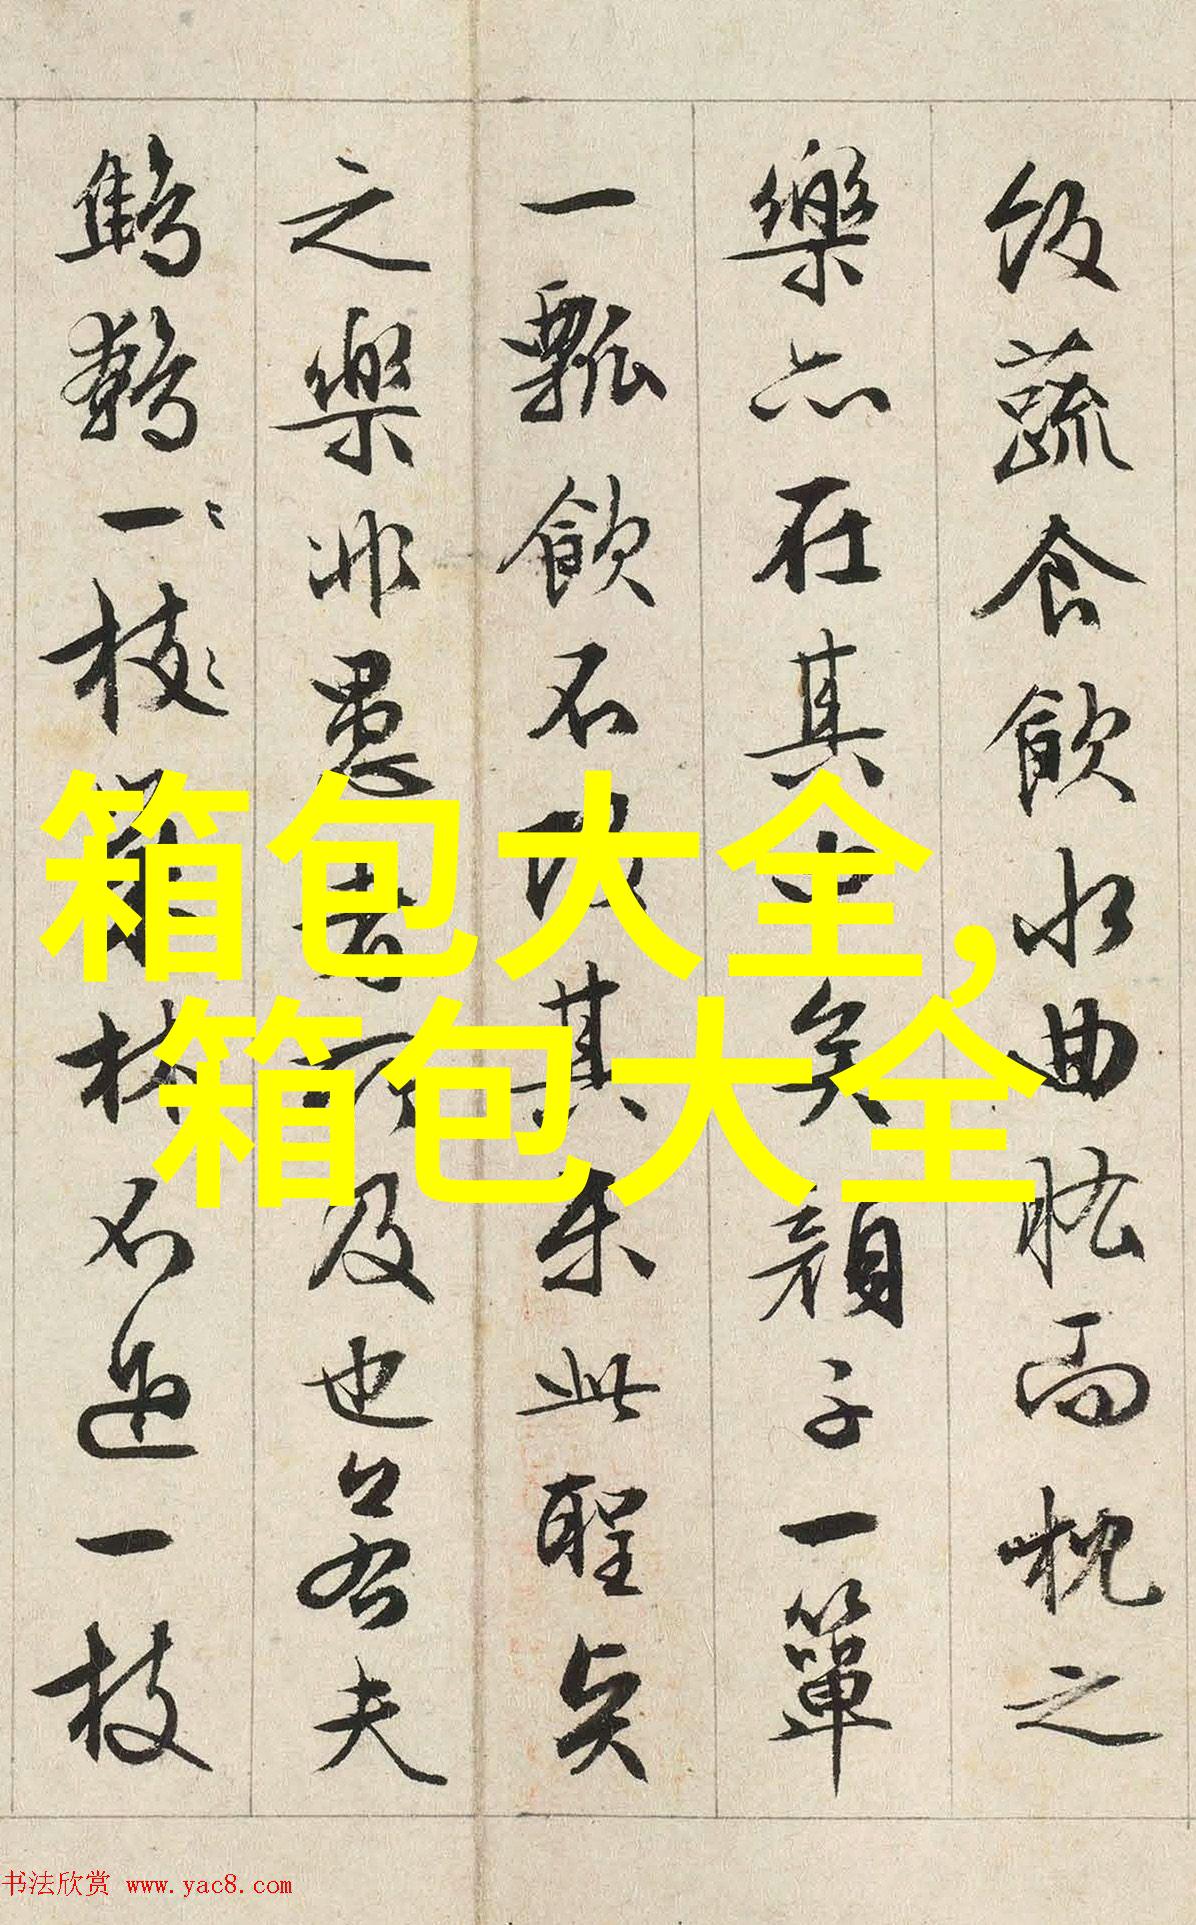 飯蔬食飲水曲肱而枕之
樂亦在其中矣顏子一簞
一瓢飲不改其樂此聖賢
之樂非愚者所及也若夫
鷦鷯一枝巢林不過一枝
箱包大全,
箱包大全
书法欣赏 www.yac8.com